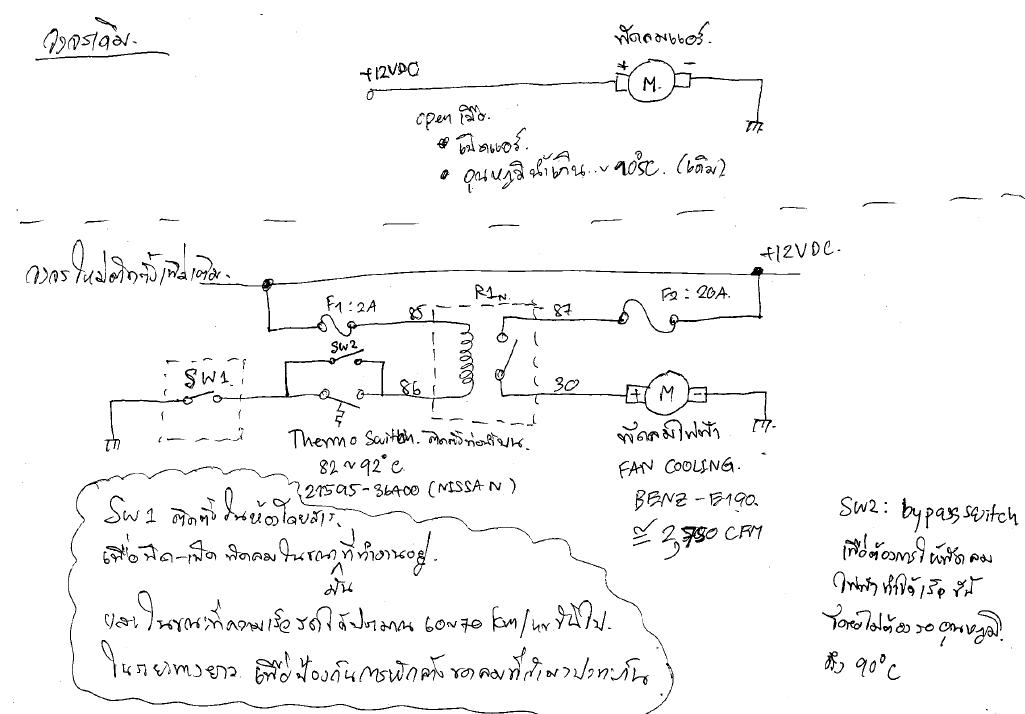 วงจรเดิม.
พัดลมแอร์.
+12VDC
+ M. -
open เมื่อ.
• เปิดแอร์.
• อุณหภูมิน้ำเกิน..~90°C. (เดิม)
+12VDC.
วงจรใหม่ติดตั้งเพิ่มเติม.
F1:2A
85
R1
87
F2:20A.
SW2
SW1.
86
30
+ M -
Thermo Switch. ติดตั้งท่อ
82~92°C.
21595-36A00 (NISSAN)
พัดลมไฟฟ้า
FAN COOLING.
BENZ-E190.
≅ 2,750 CFM
SW1 ติดตั้งในห้องโดยสาร.
เพื่อปิด-เปิด พัดลมในขณะที่ทำงานอยู่.
มัน
และในขณะที่ความเร็วรถได้ประมาณ 60~70 km/hr ขึ้นไป.
ในระยะทางยาว เพื่อป้องกันการหักล้างของลมที่เข้ามาปะทะกัน
SW2: bypass switch
เพื่อต้องการให้พัดลม
ไฟฟ้าทำได้เร็วขึ้น
โดยไม่ต้องรออุณหภูมิ.
ถึง 90°C